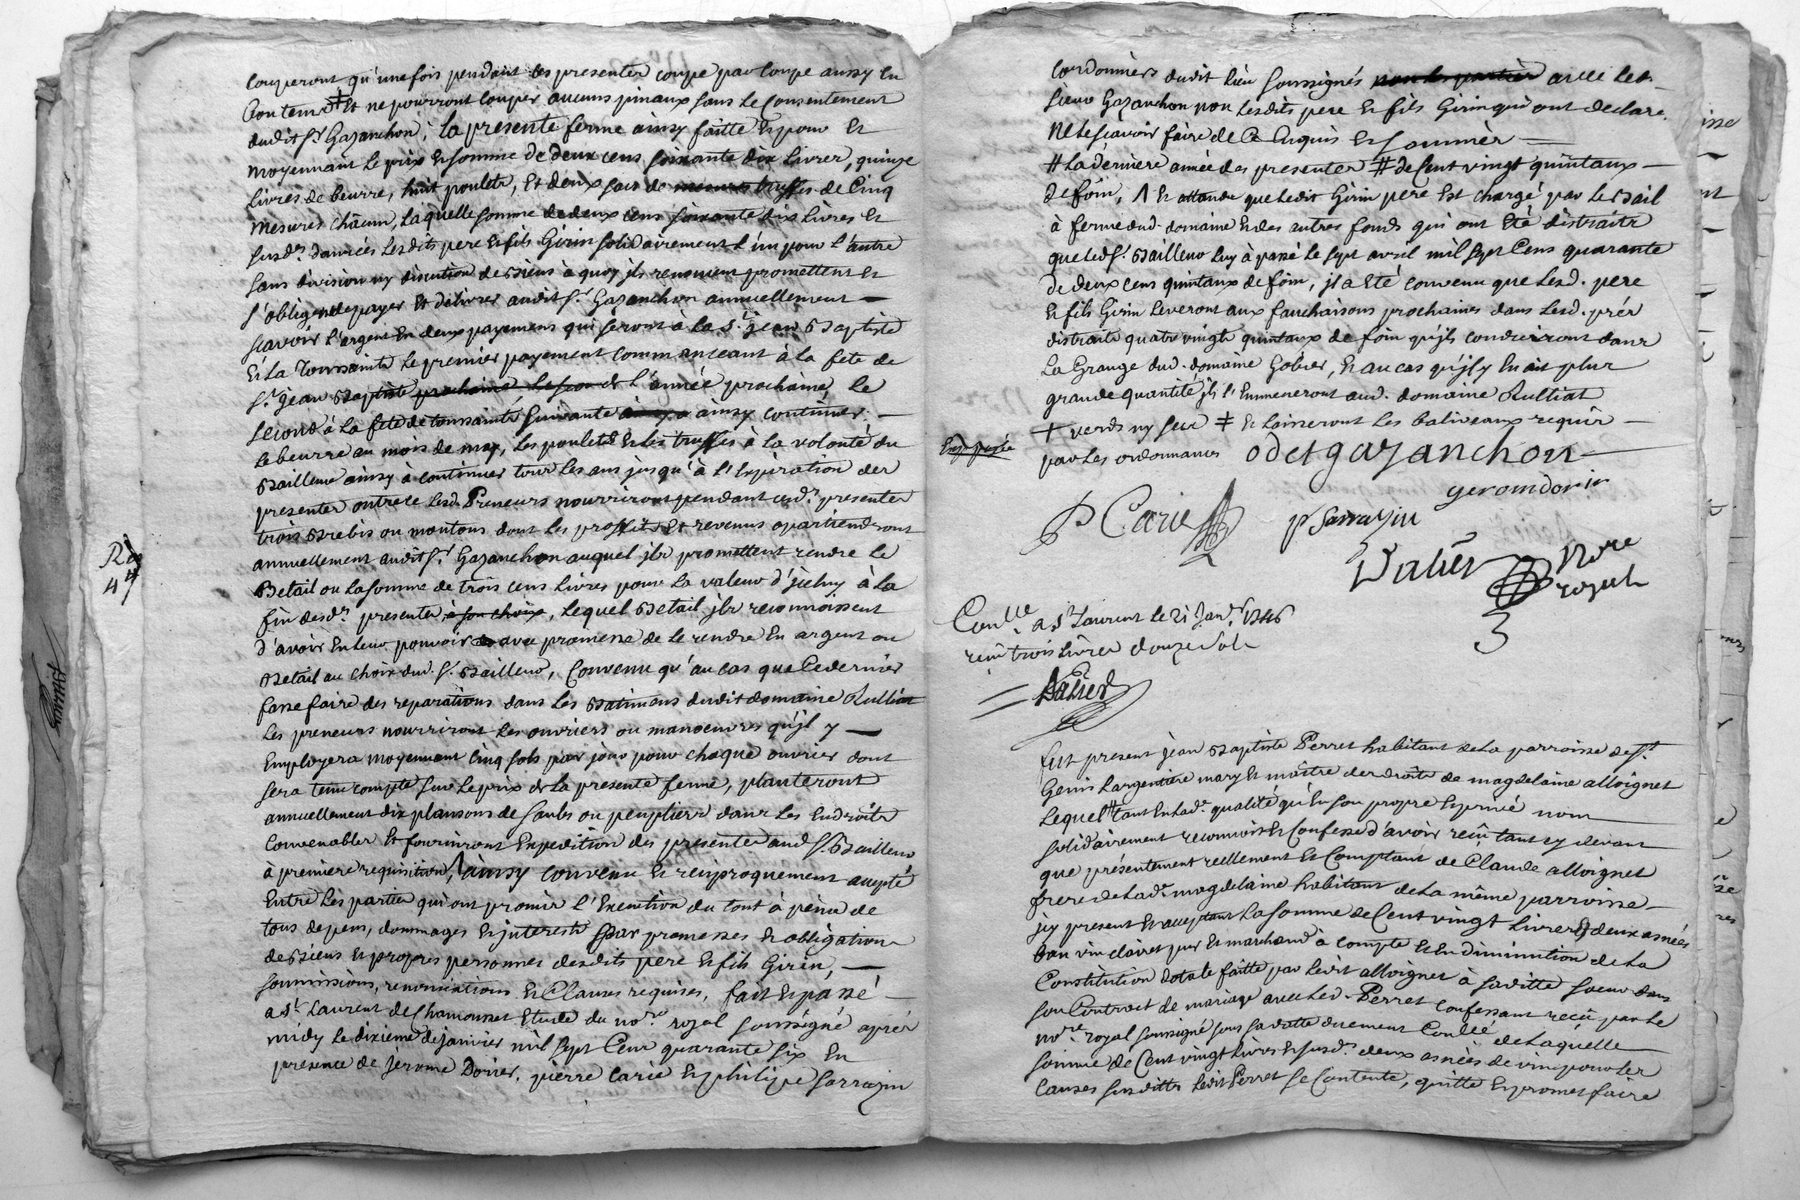 couperont qu'une fois pendant les presentes coupe par coupe aussy en
Contenu ‡ Et ne pourront couper aucuns pinaux sans le Consentement
dudit sr Gazanchon; la presente ferme ainsy faitte Et pour Et
moyennant Le prix Et somme de deux cens soixante dix livres, quinze
livres de beurre, huit poulets, Et deux sacs de truffes de Cinq
mesures châcun, Laquelle somme de deux cens soixante dix livres Et
susd.s danrées Lesdits pere Et fils Girin solidairement l'un pour l'autre
sans division ny discution de biens à quoy jls renoncent promettent Et
s'obligent de payer Et délivrer audit s.r Gazanchon annuellement —
sçavoir l'argent En deux payemens qui seront à la s.t jean Baptiste
Et La Toussaints Le premier payement commanceant à la fete de
s.t jean Baptiste prochaine de l'année prochaine, le
second à La fete de toussaints suivante ainsy continuer —
Le beurre au mois de may, Les poulets Et Les truffes à la volonté du
Bailleur ainsy à continuer tous les ans jusqu'à l'Expiration des
presentes outre ce lesd. Preneurs nourriront pendant cesd.s presentes
trois Brebis ou moutons dont les proffits Et revenus apartiendront
annuellement audit s.r Gazanchon auquel jls promettent rendre le
Betail ou la somme de trois cens livres pour la valeur d'jceluy à la
fin desd.s presentes à son choix, Lequel Betail jls reconnoissent
d'avoir En leur pouvoir avec promesse de le rendre En argent ou
Betail au choix dud. s.r Bailleur, Convenu qu'au cas que Ce dernier
fasse faire des reparations dans les Batimens dudit domaine Rulliat
Les preneurs nourriront Les ouvriers ou manoeuvres qu'jl y —
Employera moyennant Cinq sols par jour pour chaque ouvrier dont
sera tenu compte sur Le prix de La presente ferme, planteront
annuellement dix plansons de saules ou peupliers dans Les Endroits
Convenables Et fourniront Expedition des presentes aud. s.r Bailleur
à premiere requisition, Λ ainsy convenu Et reciproquement accepté
Entre Les parties qui ont promis l'Execution du tout à peine de
tous depens, dommages Et jnterests par promesses Et obligation
de Biens Et propres personnes desdits pere Et fils Girin, —
soumissions, renonciations Et Clauses requises, fait Et passé —
a s.t Laurent de Chamousset Etude du no.re royal soussigné après
midy Le dixieme de janvier mil sept Cens quarante six En
presence de jerome Dorier, pierre Carie Et philipe sarrazin
R.
44
cordonniers dudit lieu soussignés avec Led.
sieur Gazanchon non Lesdits pere Et fils Girin qui ont declaré
ne le sçavoir faire de Ce Enquis Et sommés —
# La derniere année des presentes # de Cent vingt quintaux —
de foin, Λ Et attendu que Ledit Girin pere Est chargé par Le Bail
à ferme dud. domaine Et des autres fonds qui ont Eté distraits
que led. s.r Bailleur luy à passé le sept avril mil sept Cens quarante
de deux cens quintaux de foin, jl a Eté convenu que Lesd. pere
Et fils Girin Leveront aux fauchaisons prochaines dans Lesd. prés
distraits quatre vingts quintaux de foin qu'jls conduiront dans
La Grange dud. domaine Gobier, Et au cas qu'jl y En ait plus
grande quantité jls l'Enmeneront aud. domaine Rulliat
+ verds ny secs ‡ Et laisseront Les baliveaux requis —
par Les ordonnances odet gazanchon —
Expediée
geromdorier
P Carie
p sarrazin
Dalier Nore
royal
3
Con.lle a s.t Laurent le 21 Janv.r 1746
reçu trois livres douze sols
Dalier
fut present jean Baptiste Perret habitant de La parroisse de s.t
Genis Largentiere mary Et maître des droits de magdelaine alloignet
Lequel tant En lad.e qualité qu'En son propre Et privé nom
solidairement reconnoit Et Confesse d'avoir reçu tant cy devant
que présentement réellement Et Comptant de Claude alloignet
frere de Lad.e magdelaine habitant de La même parroisse —
jcy present Et acceptant La somme de Cent vingt Livres Et deux asnées
bon vin clairet pur Et marchand à compte Et En diminution de La
Constitution dotale faitte par ledit alloignet à saditte soeur dans
son Contract de mariage avec Led. Perret confessant reçu par Le
no.re royal soussigné sous sa datte duement Con.llé de Laquelle
somme de Cent vingt livres Et susd. deux asnées de vin pour les
Causes susdittes Ledit Perret se Contente, quitte Et promet faire